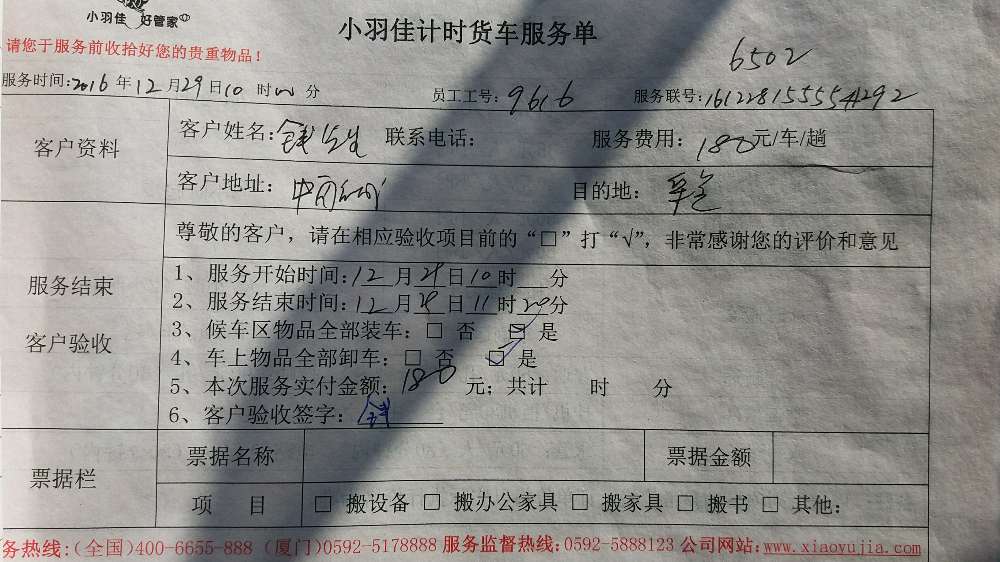 小羽佳 好管家
小羽佳计时货车服务单
请您于服务前收拾好您的贵重物品！
6502
服务时间:2016年12月29日10时00分 员工工号: 9616 服务联号:161228155554292
客户资料
客户姓名:钱先生 联系电话: 服务费用: 180元/车/趟
客户地址: 目的地:
尊敬的客户，请在相应验收项目前的“□”打“√”，非常感谢您的评价和意见
服务结束
客户验收
1、服务开始时间:12月29日10时 分
2、服务结束时间:12月29日11时20分
3、候车区物品全部装车:□ 否 ☑ 是
4、车上物品全部卸车:□ 否 ☑ 是
5、本次服务实付金额:180 元；共计 时 分
6、客户验收签字: 钱
票据栏
票据名称 票据金额
项 目 □ 搬设备 □ 搬办公家具 □ 搬家具 □ 搬书 □ 其他:
务热线:(全国)400-6655-888 (厦门)0592-5178888 服务监督热线:0592-5888123 公司网站:www.xiaoyujia.com